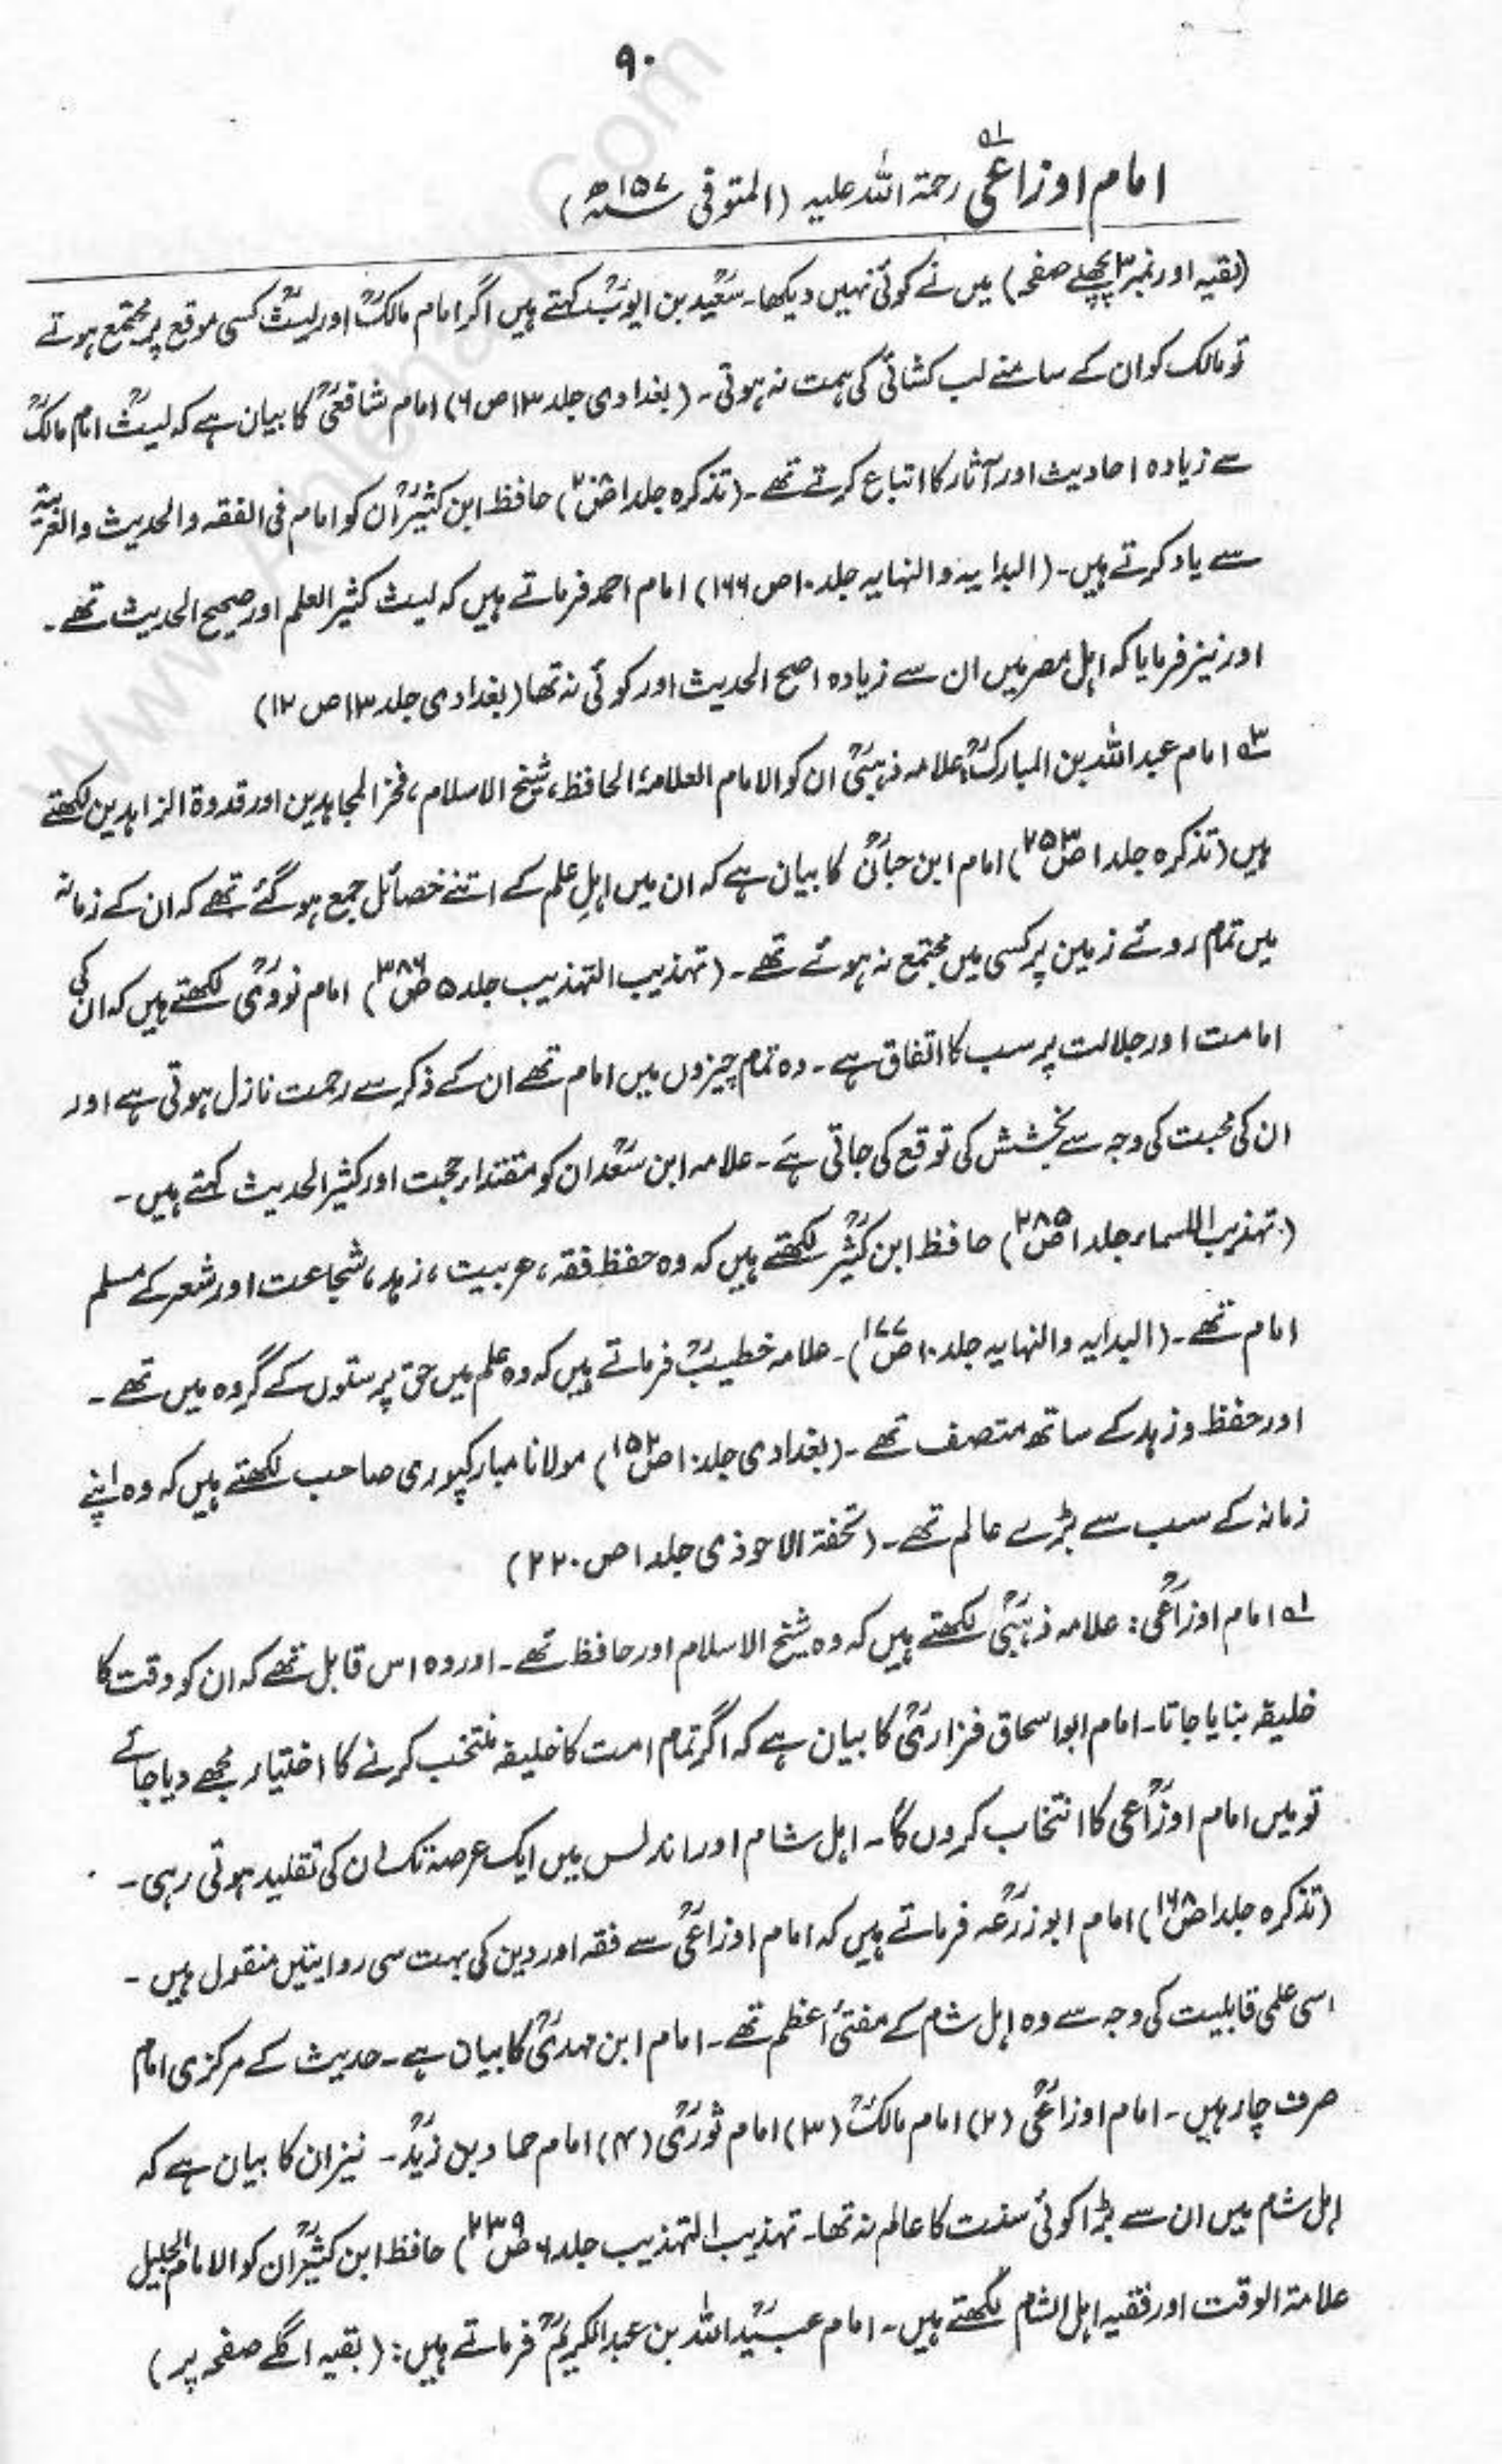 ۹۰
امام اوزاعیؒ ۱ھ رحمۃ اللہ علیہ (المتوفی ۱۵۷ھ)
(بقیہ اور نمبر ۲ پچھلے صفحہ) میں نے کوئی نہیں دیکھا۔ سعیدؒ بن ایوبؒ کہتے ہیں اگر امام مالکؒ اور لیثؒ کسی موقع پر مجتمع ہوتے
تو مالک کو ان کے سامنے لب کشائی کی ہمت نہ ہوتی۔ (بغدادی جلد ۱۳ ص ۶) امام شافعیؒ کا بیان ہے کہ لیثؒ امام مالکؒ
سے زیادہ احادیث اور آثار کا اتباع کرتے تھے۔ (تذکرہ جلد ۱ ص) حافظ ابن کثیرؒ ان کو امام فی الفقہ والحدیث والعربیۃ
سے یاد کرتے ہیں۔ (البدایہ والنہایہ جلد ۱۰ ص ۱۶۶) امام احمد فرماتے ہیں کہ لیث کثیر العلم اور صحیح الحدیث تھے۔
اور نیز فرمایا کہ اہل مصر میں ان سے زیادہ اصح الحدیث اور کوئی نہ تھا (بغدادی جلد ۱۳ ص ۱۲)
۳ھ امام عبداللہ بن المبارکؒ: علامہ ذہبیؒ ان کو الامام العلامۃ الحافظ، شیخ الاسلام، فخر المجاہدین اور قدوۃ الزاہدین لکھتے
ہیں (تذکرہ جلد ۱ ص ۲۵۳) امام ابن حبانؒ کا بیان ہے کہ ان میں اہلِ علم کے اتنے خصائل جمع ہو گئے تھے کہ ان کے زمانہ
میں تمام روئے زمین پر کسی میں مجتمع نہ ہوئے تھے۔ (تہذیب التہذیب جلد ۵ ص ۳۸۶) امام نوویؒ لکھتے ہیں کہ ان کی
امامت اور جلالت پر سب کا اتفاق ہے۔ وہ تمام چیزوں میں امام تھے ان کے ذکر سے رحمت نازل ہوتی ہے اور
ان کی محبت کی وجہ سے بخشش کی توقع کی جاتی ہے۔ علامہ ابن سعدؒ ان کو مقتداء حجت اور کثیر الحدیث کہتے ہیں۔
(تہذیب الاسماء جلد ۱ ص ۲۸۵) حافظ ابن کثیرؒ لکھتے ہیں کہ وہ حفظ فقہ، عربیت، زہد، شجاعت اور شعر کے مسلم
امام تھے۔ (البدایہ والنہایہ جلد ۱۰ ص ۱۷۷)۔ علامہ خطیبؒ فرماتے ہیں کہ وہ علم میں حق پرستوں کے گروہ میں تھے۔
اور حفظ و زہد کے ساتھ متصف تھے۔ (بغدادی جلد ۱۰ ص ۱۵۲) مولانا مبارکپوری صاحب لکھتے ہیں کہ وہ اپنے
زمانہ کے سب سے بڑے عالم تھے۔ (تحفۃ الاحوذی جلد ۱ ص ۲۲۰)
۱ھ امام اوزاعیؒ: علامہ ذہبیؒ لکھتے ہیں کہ وہ شیخ الاسلام اور حافظ تھے۔ اور وہ اس قابل تھے کہ ان کو وقت کا
خلیفہ بنایا جاتا۔ امام ابو اسحاق فزاریؒ کا بیان ہے کہ اگر تمام امت کا خلیفہ منتخب کرنے کا اختیار مجھے دیا جائے
تو میں امام اوزاعیؒ کا انتخاب کروں گا۔ اہل شام اور اندلس میں ایک عرصہ تک ان کی تقلید ہوتی رہی۔
(تذکرہ جلد ۱ ص ۱۶۸) امام ابو زرعہؒ فرماتے ہیں کہ امام اوزاعیؒ سے فقہ اور دین کی بہت سی روایتیں منقول ہیں۔
اسی علمی قابلیت کی وجہ سے وہ اہل شام کے مفتئ اعظم تھے۔ امام ابن مہدیؒ کا بیان ہے۔ حدیث کے مرکزی امام
صرف چار ہیں۔ امام اوزاعیؒ (۲) امام مالکؒ (۳) امام ثوریؒ (۴) امام حماد بن زیدؒ۔ نیز ان کا بیان ہے کہ
اہل شام میں ان سے بڑا کوئی سنت کا عالم نہ تھا۔ تہذیب التہذیب جلد ۶ ص ۲۳۹) حافظ ابن کثیرؒ ان کو الامام الجلیل
علامۃ الوقت اور فقیہ اہل الشام لکھتے ہیں۔ امام عبیداللہؒ بن عبدالکریمؒ فرماتے ہیں: (بقیہ اگلے صفحہ پر)